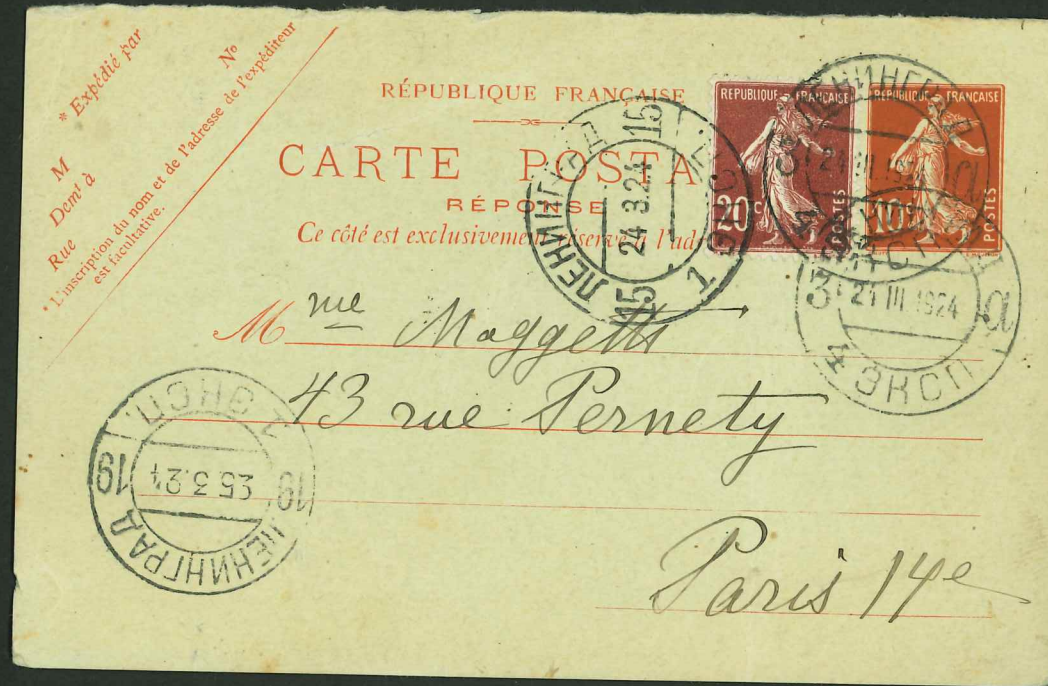 * Expédié par
N°
M
Demt à
Rue
* L'inscription du nom et de l'adresse de l'expéditeur
est facultative.
RÉPUBLIQUE FRANÇAISE
CARTE POSTA
RÉPONSE
Ce côté est exclusivement réservé à l'ad
REPUBLIQUE FRANÇAISE
20c
POSTES
REPUBLIQUE FRANÇAISE
10c
POSTES
ЛЕНИНГРАД
15
24.3.24
15
1 ЭКСП.
ЛЕНИНГРАД
3
21 III 1924
а
3
21 III 1924
а
4 ЭКСП
Mme Maggetti
43 rue Pernety
Paris 14e
ЭКСП.
19
25.3.24
19
ЛЕНИНГРАД